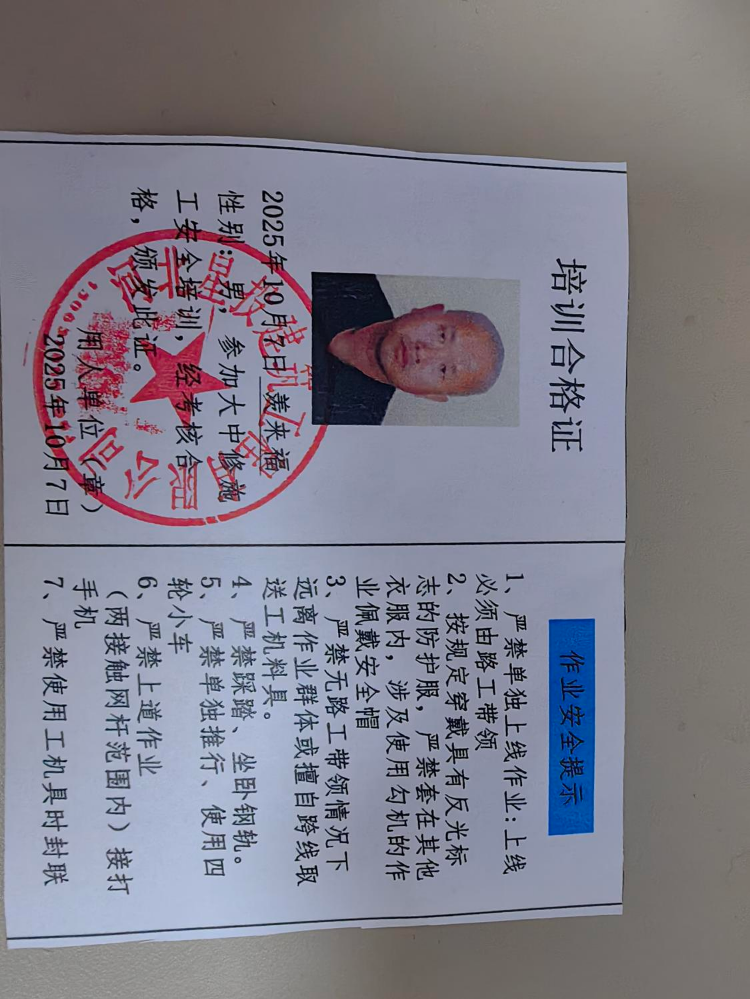 培训合格证
2025年10月7日 姜来福
性别：男， 参加大中修施
工安全培训，经考核合
格，颁发此证。
用人单位（章）
2025年10月7日
作业安全提示
1、严禁单独上线作业：上线
必须由路工带领
2、按规定穿戴具有反光标
志的防护服，严禁套在其他
衣服内，涉及使用勾机的作
业佩戴安全帽
3、严禁无路工带领情况下
远离作业群体或擅自跨线取
送工机料具。
4、严禁踩踏、坐卧钢轨。
5、严禁单独推行、使用四
轮小车
6、严禁上道作业
（两接触网杆范围内）接打
手机
7、严禁使用工机具时封联